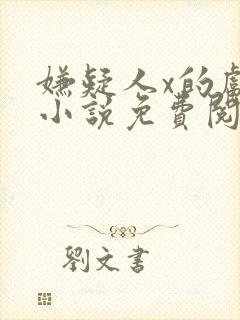 嫌疑人x的
小說免費閱
劉文書